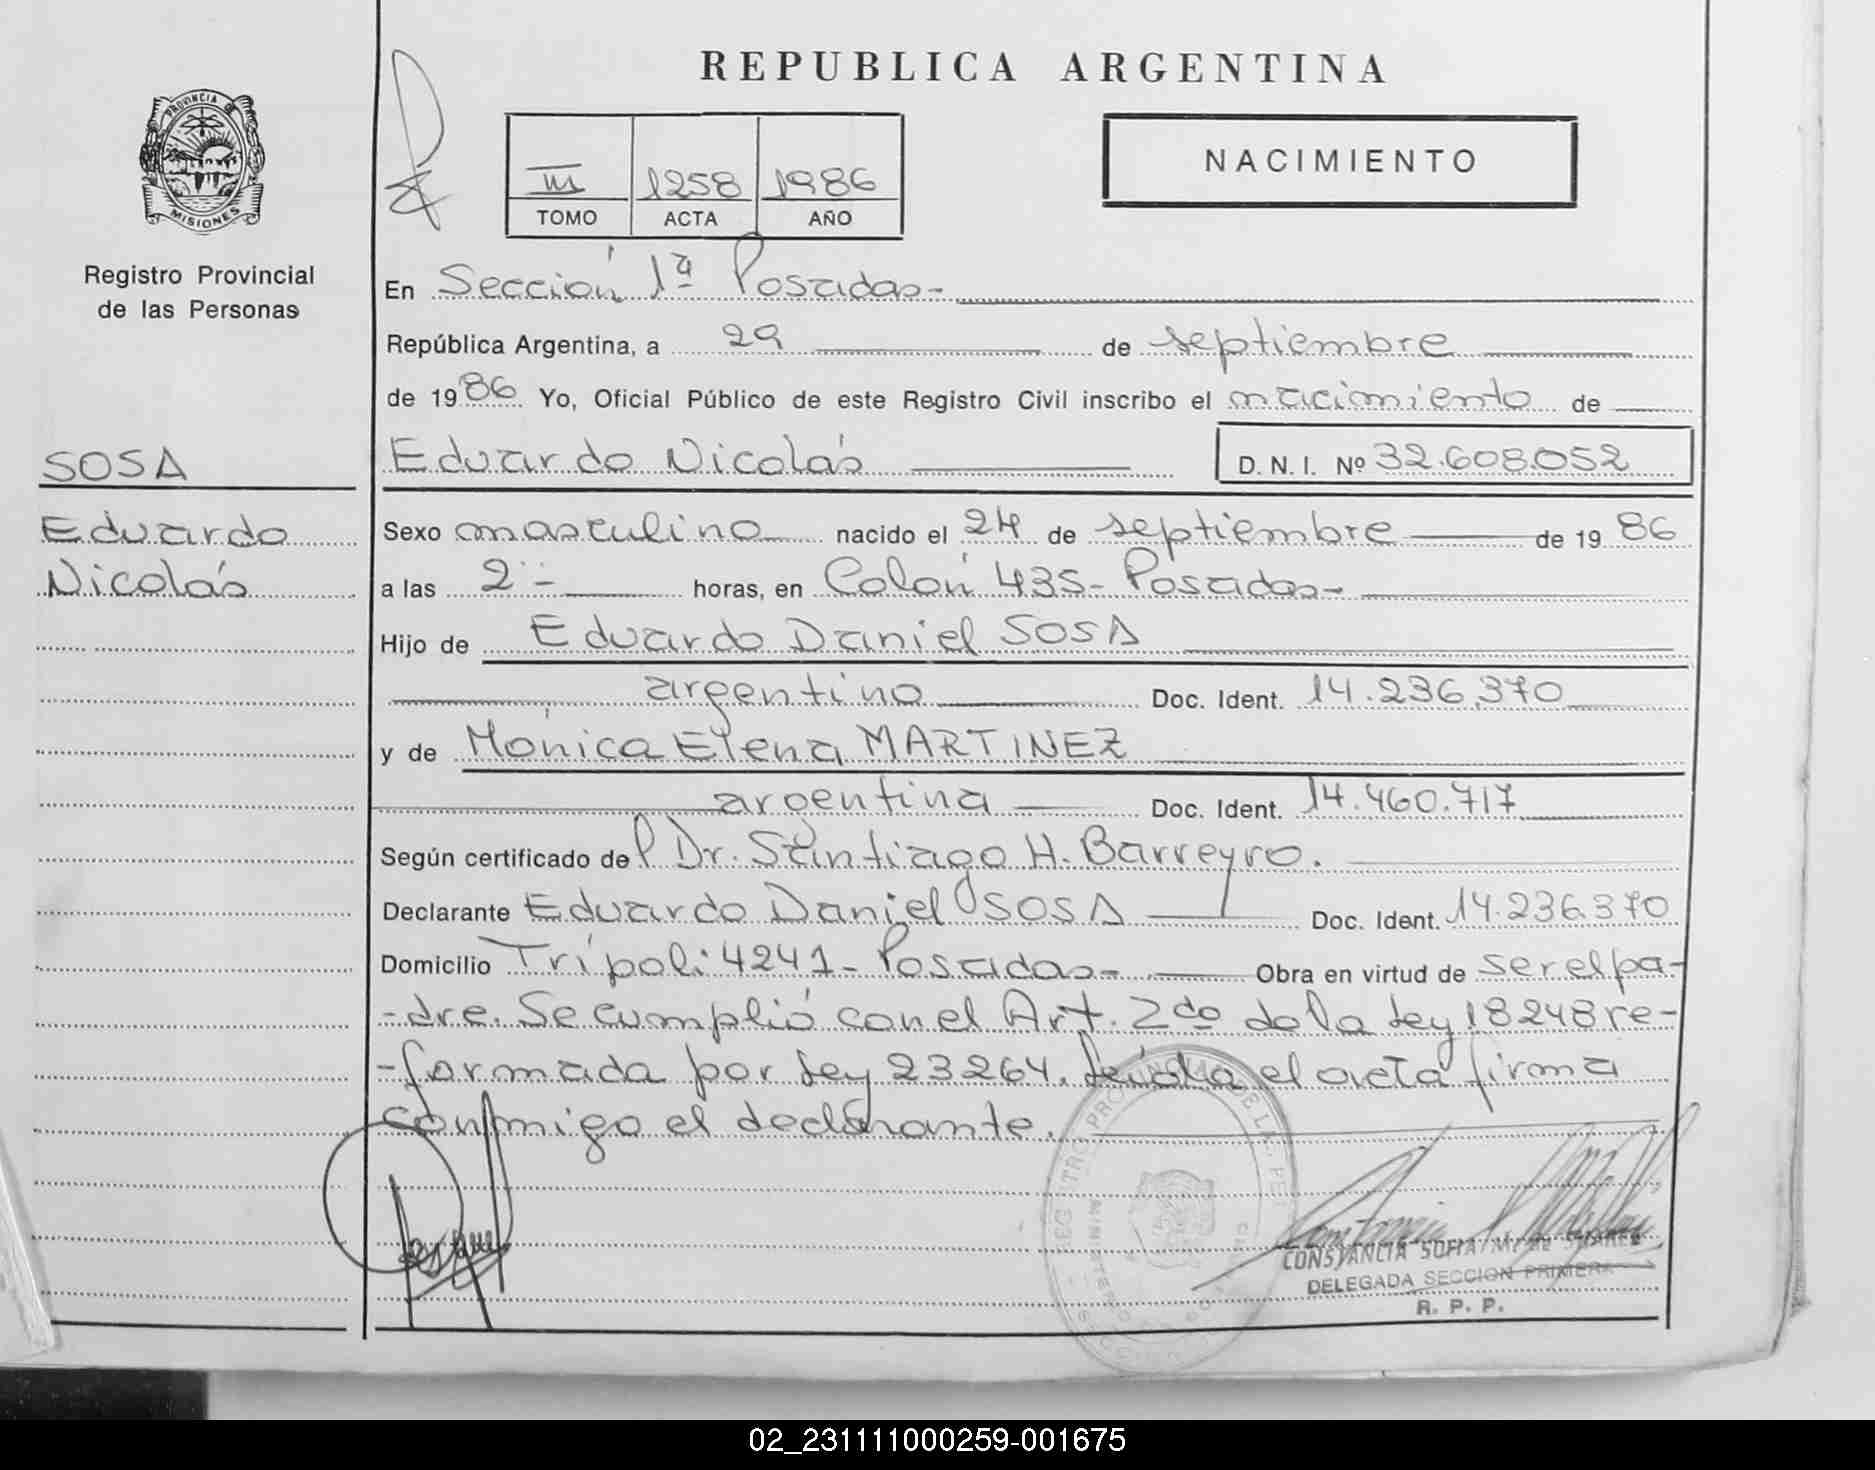 REPUBLICA ARGENTINA
PROVINCIA DE
MISIONES
Registro Provincial
de las Personas
III 1258 1986
TOMO ACTA AÑO
NACIMIENTO
En Sección 1ª Posadas-
República Argentina, a 29 de septiembre
de 1986 Yo, Oficial Público de este Registro Civil inscribo el nacimiento de
SOSA
Eduardo Nicolás D. N. I. Nº 32.608.052
Eduardo
Nicolás
Sexo masculino nacido el 24 de septiembre de 1986
a las 2- horas, en Colón 435- Posadas-
Hijo de Eduardo Daniel SOSA
argentino Doc. Ident. 14.236.370
y de Mónica Elena MARTINEZ
argentina Doc. Ident. 14.460.717
Según certificado del Dr. Santiago H. Barreyro.
Declarante Eduardo Daniel SOSA Doc. Ident. 14.236.370
Domicilio Trípoli 4241- Posadas- Obra en virtud de ser el pa-
-dre. Se cumplió con el Art. 2do de la Ley 18248 re-
-formada por Ley 23264. Leída el acta firma
conmigo el declarante.
CONSTANCIA SOFIA M. de
DELEGADA SECCION PRIMERA
R. P. P.
02_231111000259-001675